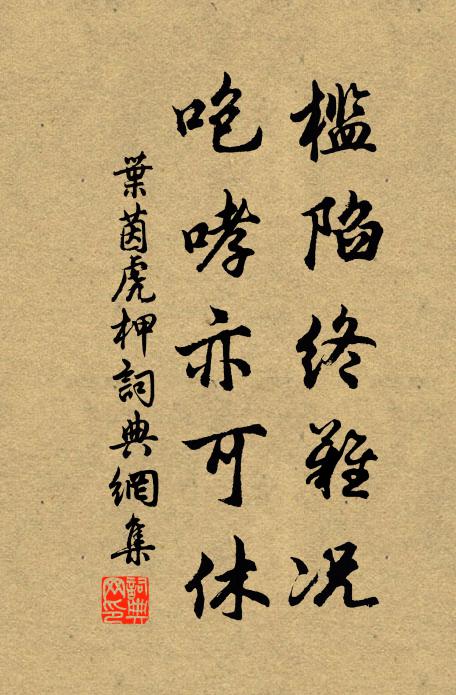 檻陷終難況
咆哮亦可休
葉茵虎柙詞典網集
詞典
网印